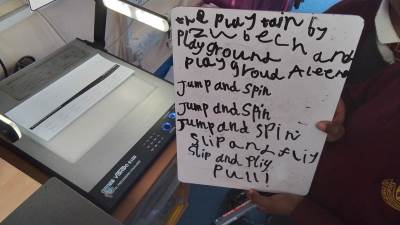 the play tain by
Pl ZWbech and
playground
playgroud Aleena
Jump and spin
Jump and spin
Jump and SPin
slip and fliy
slip and fliy
Pull!